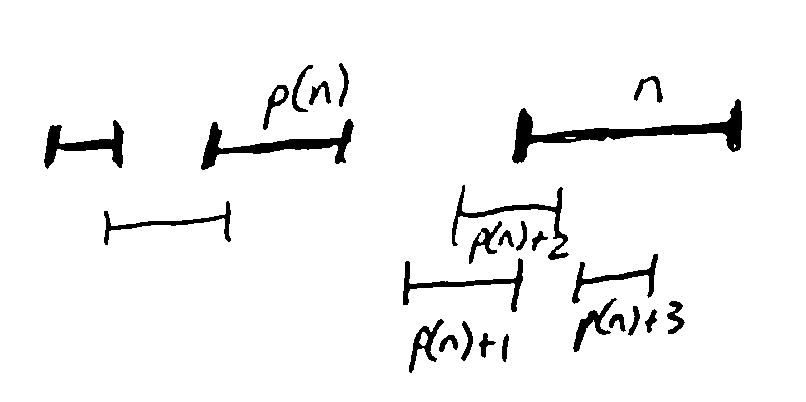 p(n)
n
p(n)+2
p(n)+1
p(n)+3